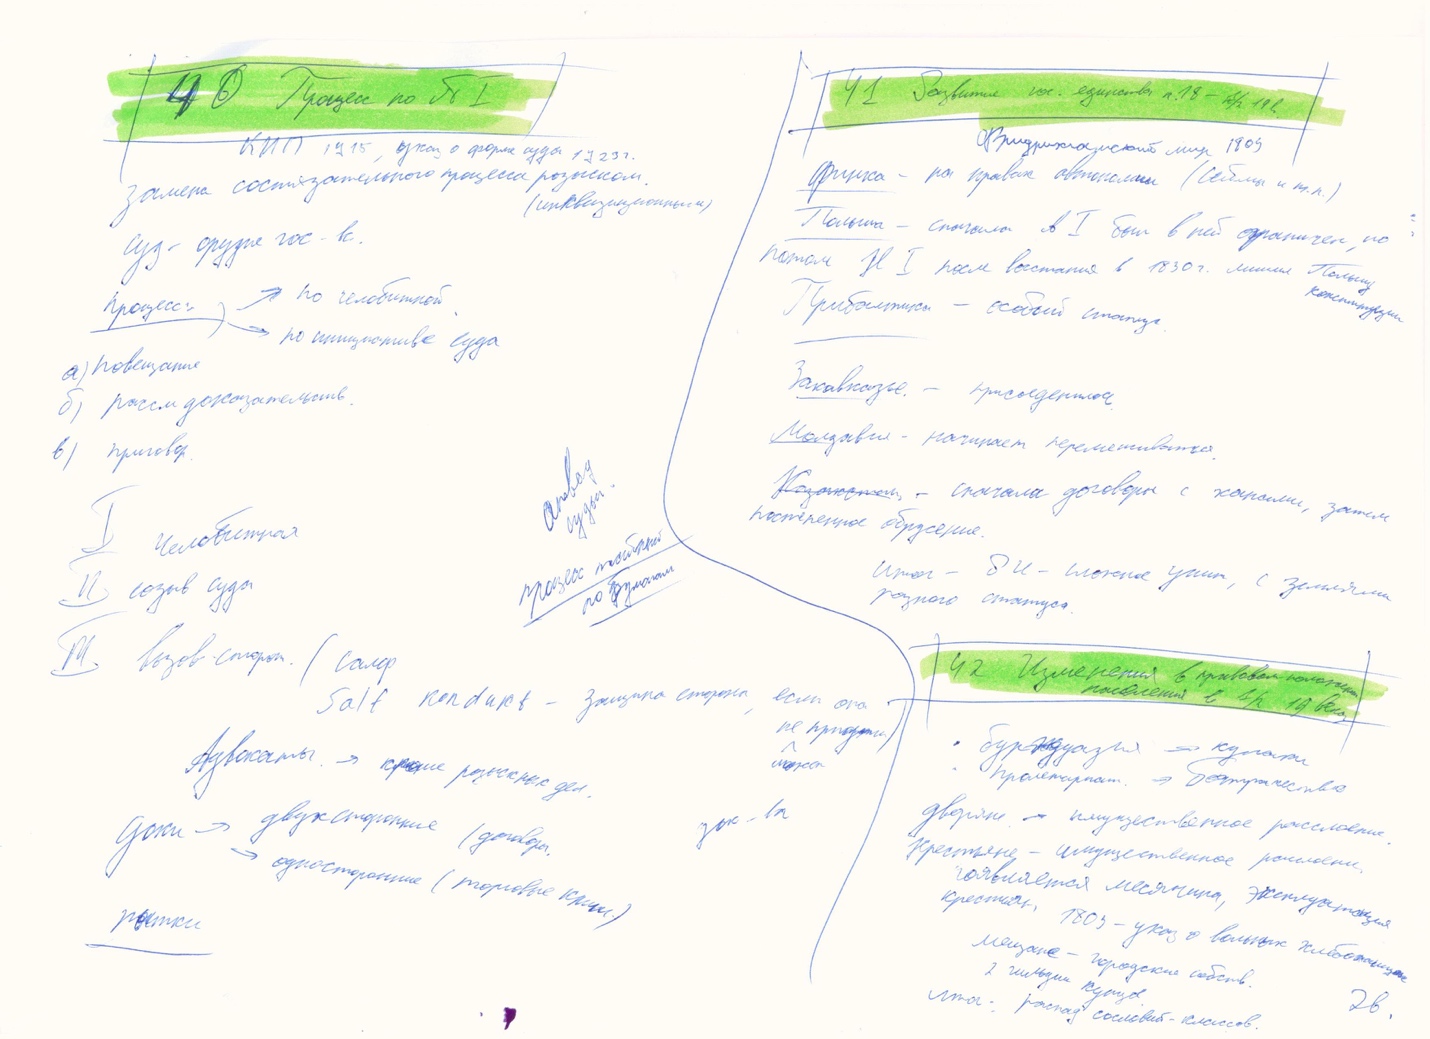 40 Процесс по П I
КИП 1715, указ о форме суда 1723г.
Замена состязательного процесса розыском.
(инквизиционным)
Суд - орудие гос-ва.
процесс:
по челобитной.
по инициативе суда
а) повещание
б) рассм доказательств.
в) приговор.
I челобитная
II созыв суда
III вызов сторон. (салф
Salf кондukt - защита сторона, если она
не придти)
отвод
судьи.
процесс
по бумагам
Адвокаты. → кроме розыскных дел.
Доки → двухсторонние (договоры.
→ односторонние (торговые книги.)
пытки
41 Развитие гос. единства п.18 - 1/2 19в.
Фридрихгамский мир 1809
Финка - на правах автономии (сеймы и т.п.)
Польша - сначала А I был в ней ограничен, но
потом Н I после восстания в 1830г. лишил Польшу
конституции
Прибалтика - особый статус.
Закавказье. - присоединилось.
Молдавия - начинает перемешиваться.
Казахстан - сначала договоры с ханами, затем
постепенное обрусение.
Итог - РИ - сложная унит, с землями
разного статуса.
42 Изменения в правовом положении
населения в 1/2 19 века
• буржуазия → кулаки
• пролетариат. →
дворяне. → имущественное расслоение.
Крестьяне - имущественное расслоение,
появляется месячина, эксплуатация
крестьян. 1803 - указ о вольных хлебопашцах
мещане - городские собств.
2 гильдии купцов
Итог: распад сословий-классов.
2в.